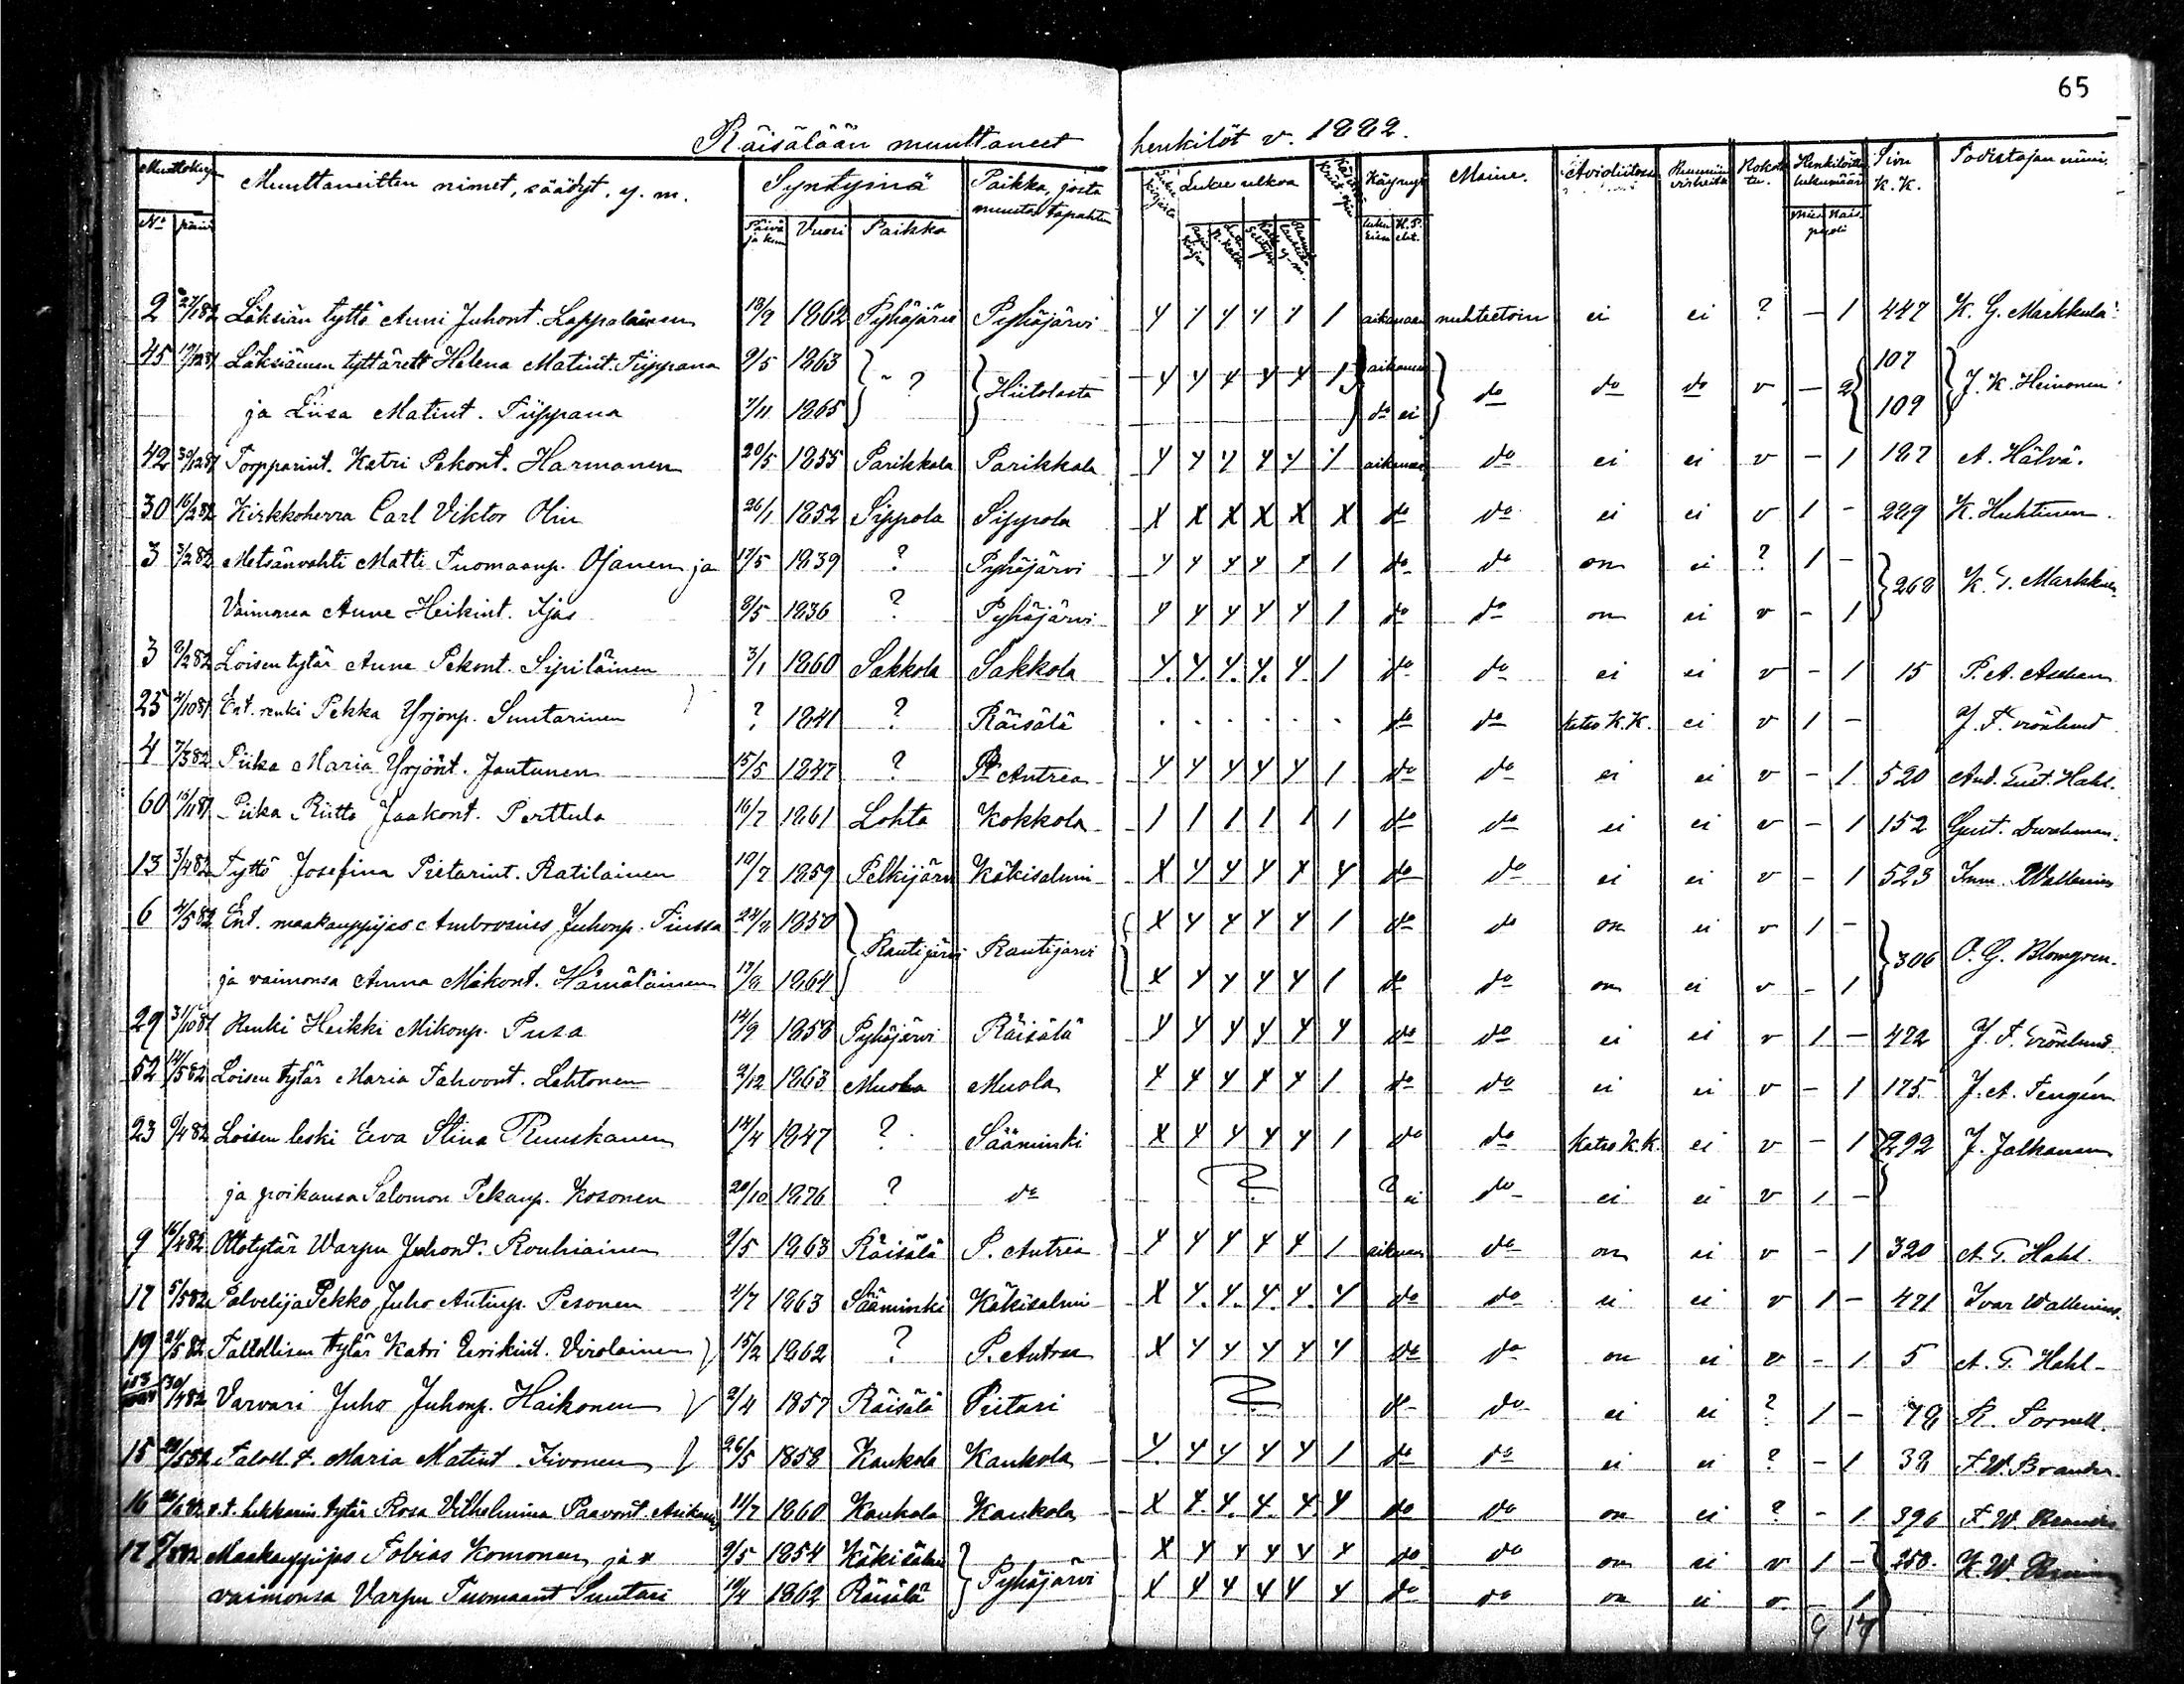 65
Räisälään muuttaneet henkilöt v. 1882.
Muuttokirjan Muuttaneitten nimet, säädyt, y. m. Syntyinä Paikka, josta muutto tapahtui Lukee ulkoa Käynyt Maine. Avioliitossa Ruumiin virheitä Rokotettu. Henkilöitten lukumäärä Sivu K. K. Todistajan nimi.
No päivä Päivä ja kuu Vuosi Paikka mies nais puoli
2 27/1 82 Läksiän tyttö Anni Juhont. Lappalainen 18/9 1862 Pyhäjärvi Pyhäjärvi 4 4 4 4 4 1 aikanaan nuhteetoin ei ei ? - 1 447 K. G. Markkula
45 Läksiämen tyttäret Helena Matint. Tiippana 9/5 1863 ? Hiitolasta 4 4 4 4 4 1 aikanaan do do do v - 2 107 J. K. Heinonen
ja Liisa Matint. Tiippana 7/11 1865 do ei 109
42 30/12 81 Torpparint. Katri Pekont. Harmanen 20/5 1855 Parikkala Parikkala 4 4 4 4 4 1 aikanaan do ei ei v - 1 187 A. Hälvä.
30 16/2 82 Kirkkoherra Carl Viktor Olin 26/1 1852 Sippola Sippola X X X X X X do do ei ei v 1 - 229 K. Huhtinen.
3 3/2 82 Metsänvahti Matti Tuomaanp. Ojanen ja 17/5 1839 ? Pyhäjärvi 4 4 4 4 1 1 do do on ei ? 1 - 268 K. G. Markkula
Vaimonsa Anne Heikint. Ijäs 8/5 1836 ? Pyhäjärvi 4 4 4 4 4 1 do do on ei v - 1
3 9/2 82 Loisen tytär Anne Pekont. Sipiläinen 3/1 1860 Sakkola Sakkola 4. 4. 4. 4. 4. 1 do do ei ei v - 1 15 P. A.
25 4/10 81 Ent. renki Pekka Yrjönp. Suutarinen ? 1841 ? Räisälä . . . . . . do do katso K. K. ei v 1 - J. F. Grönlund
4 7/3 82 Piika Maria Yrjönt. Jantunen 15/5 1847 ? P. Antrea 4 4 4 4 4 1 do do ei ei v - 1 520 And. Gust. Hahl.
60 15/11 81 Piika Riitta Jaakont. Perttula 16/7 1861 Lohta Kokkola 1 1 1 1 1 1 do do ei ei v - 1 152 Gust.
13 3/4 82 Tyttö Josefina Pietarint. Ratilainen 19/7 1859 Pelkijärvi Käkisalmi X 4 4 4 X 4 do do ei ei v - 1 523 Wallenius
6 4/5 82 Ent. maakauppijas Ambrosius Juhonp. Tiussa 1850 Rautjärvi Rautjärvi X 4 4 4 4 1 do do on ei v 1 - 306 O. G. Blomgren.
ja vaimonsa Anna Mikont. Hämäläinen 17/8 1864 X 4 4 4 4 1 do do on ei v - 1
29 31/10 81 Renki Heikki Mikonp. Pusa 14/9 1858 Pyhäjärvi Räisälä 4 4 4 4 4 4 do do ei ei v 1 - 472 J. F. Grönlund
52 12/5 82 Loisen tytär Maria Tahvont. Lehtonen 2/12 1863 Muola Muola X 4 4 4 4 1 do do ei ei v - 1 175. J. A. Fengén
23 9/4 82 Loisen leski Eeva Stina Ruuskanen 14/4 1847 ? Sääminki X 4 4 4 4 1 do do katso K. K. ei v - 1 292 J. Jalkanen
ja poikansa Salomon Pekanp. Kosonen 20/10 1876 ? do ? ei do ei ei v 1 -
9 16/4 82 Ottotytär Warpu Juhont. Rouhiainen 9/5 1863 Räisälä P. Antrea 4 4 4 4 4 1 aikanaan do on ei v - 1 320 A. G. Hahl.
17 5/5 82 Palvelija Pekko Juho Antinp. Pesonen 4/7 1863 Sääminki Käkisalmi X 4. 4. 4. 4. 4 do do ei ei v 1 - 471 Ivar Wallenius.
19 21/5 82 Talollisen tytär Katri Eerikint. Virolainen 15/2 1862 ? P. Antrea X 4 4 4 4 4 do do on ei v - 1 5 A. G. Hahl
30/4 82 Varvari Juho Juhonp. Haikonen 2/4 1857 Räisälä Pietari do do ei ei ? 1 - 78
15 Taloll. t. Maria Matint. Iivonen 26/5 1858 Kaukola Kaukola 4. 4 4 4 4 1 do do ei ei ? - 1 38 F. W. Brander.
16 tytär Rosa Vilhelmina Paavont. 11/7 1860 Kaukola Kaukola X 4. 4. 4. 4. 4 do do on ei ? - 1 396 F. W. Brander
17 Maakauppijas Tobias Komonen ja 9/5 1854 Käkisalmi Pyhäjärvi X 4 4 4 4 4 do do on ei v 1 - 250. K. W.
vaimonsa Varpu Tuomaant Suutari 19/4 1862 Räisälä X 4 4 4 4 4 do do on ei v - 1
9 17